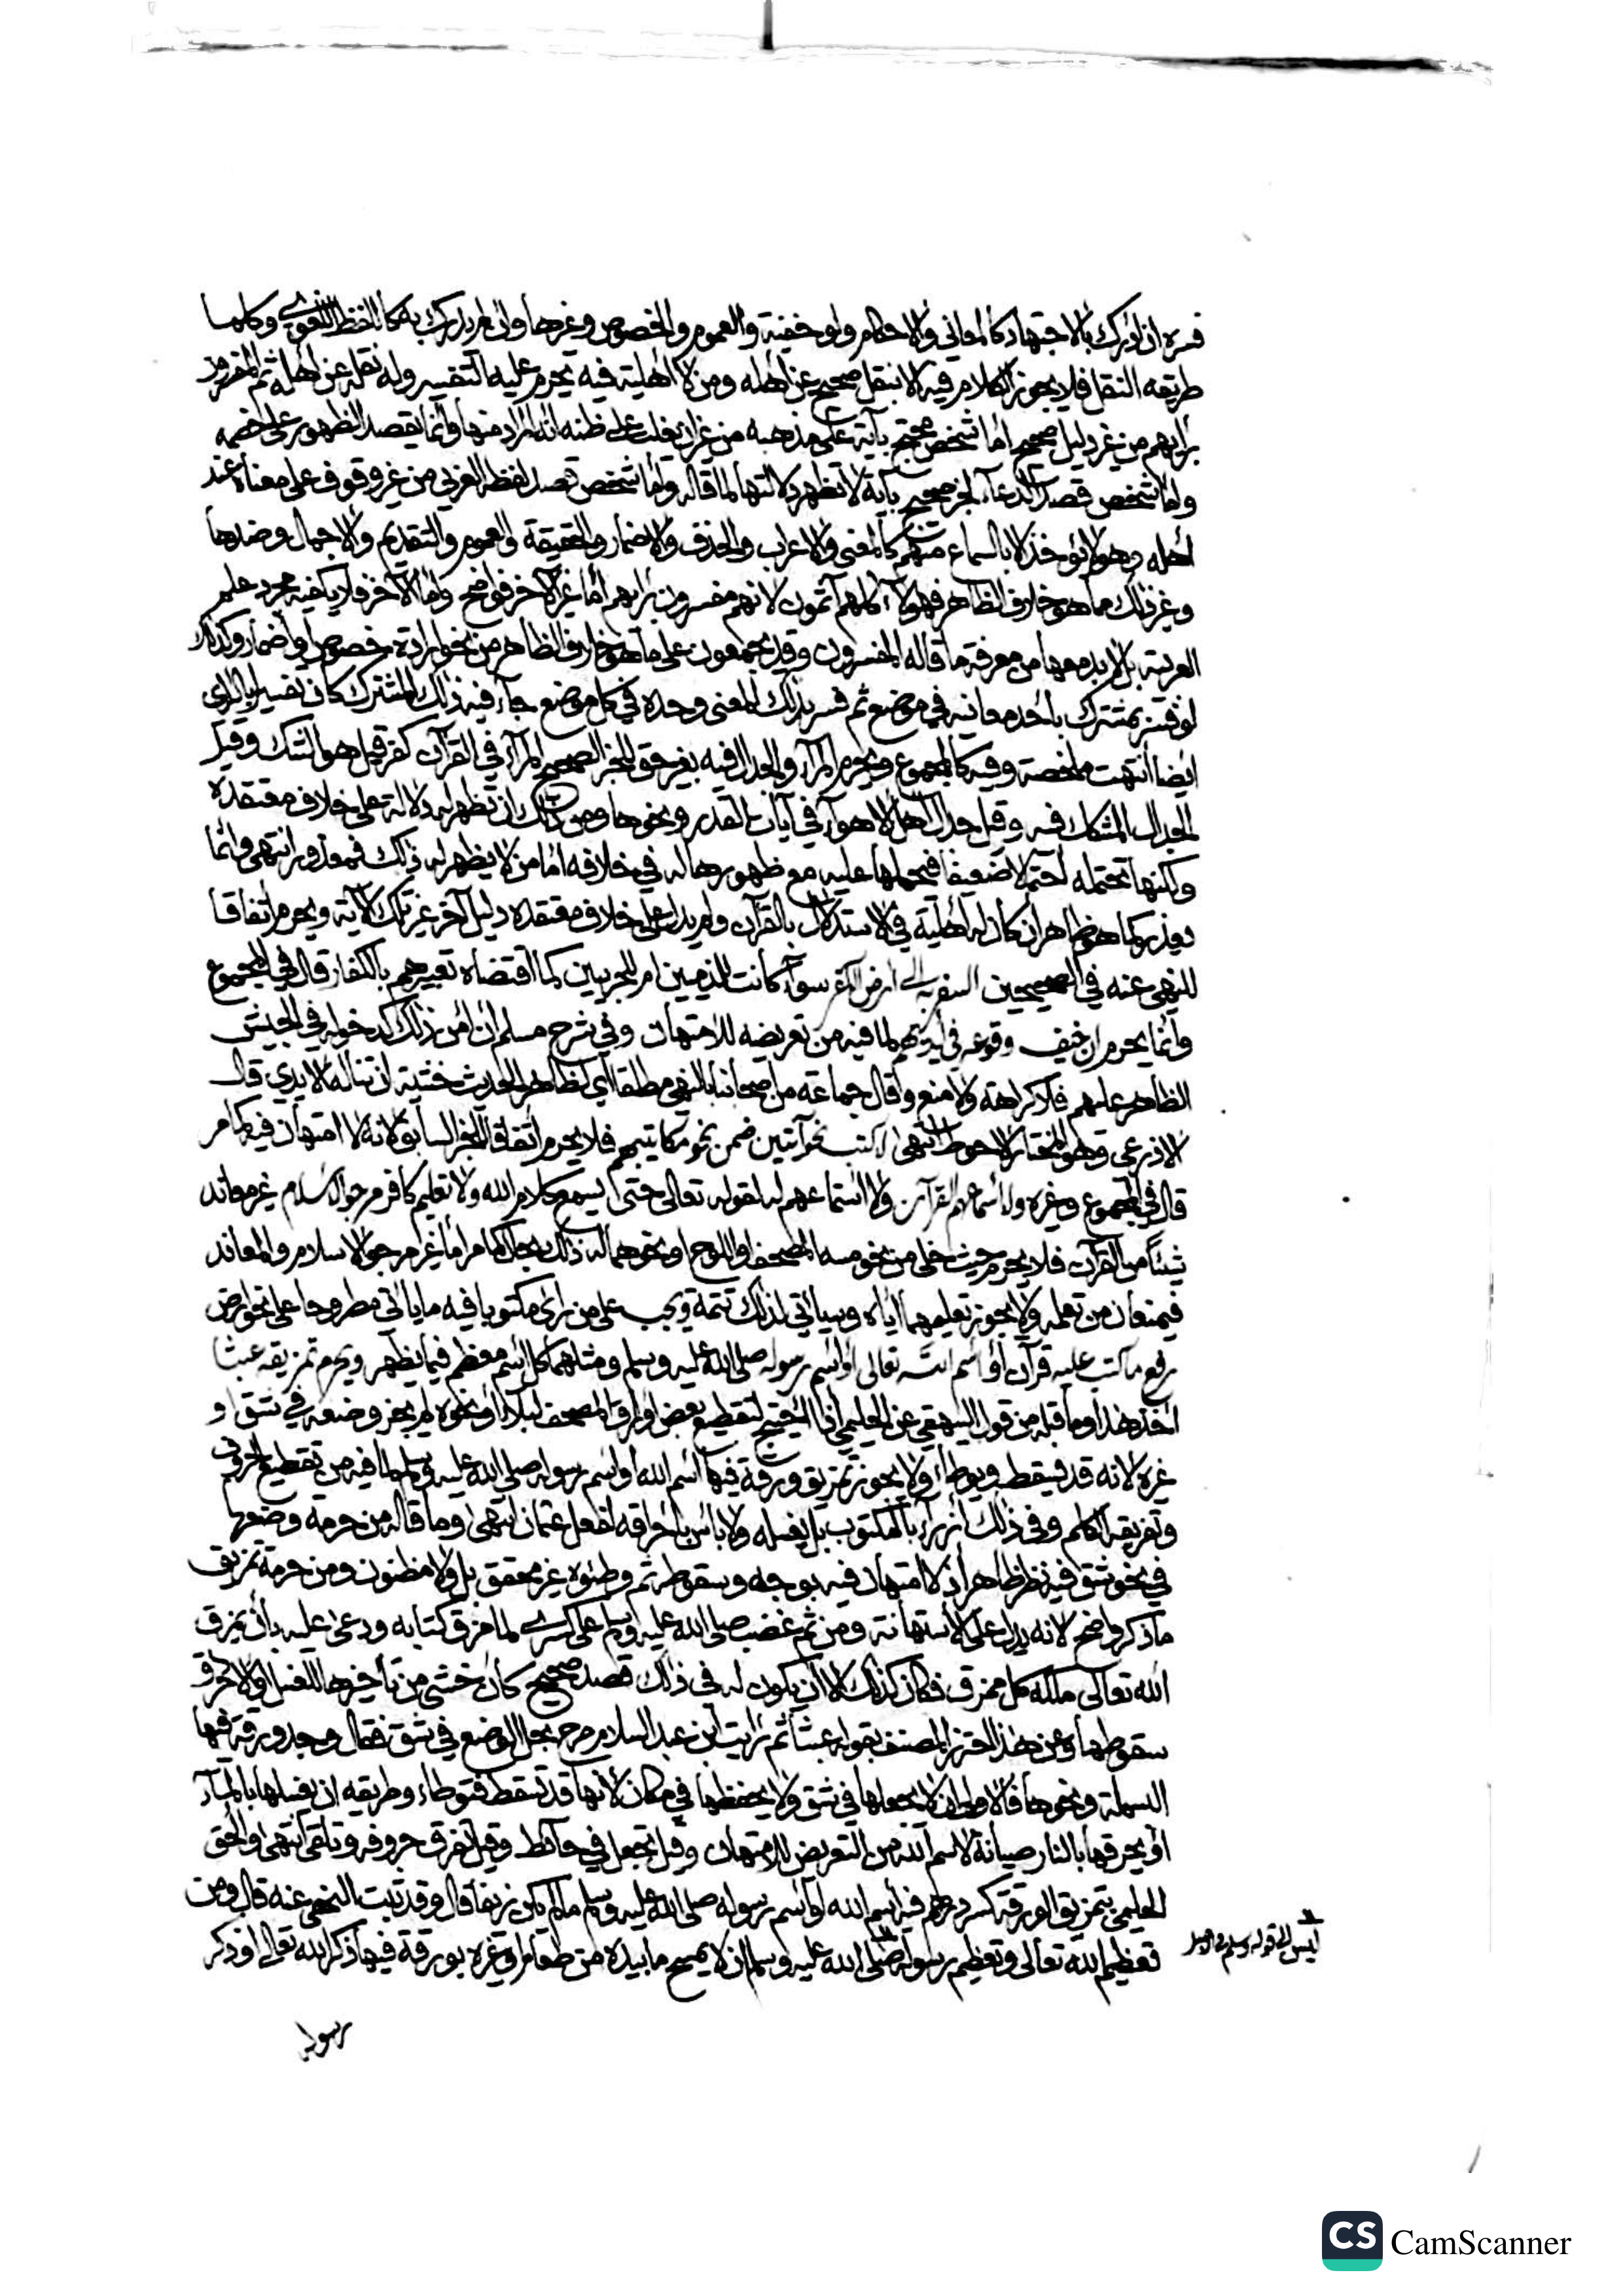 فسره ان ادرك بالاجتهاد كالمعاني والاحكام ولو خفية والعموم والخصوص وغيرها وان لم يدرك به كاللفظ اللغوي وكلما
طريقه النقل فلا يجوز الكلام فيه الا بنقل صحيح عن اهله ومن لا اهلية فيه يحرم عليه التفسير وله نقله عن اهله ثم المفسرون
برأيهم من غير دليل صحيح اما شخص محتج بآية على مذهبه من غير ان يغلب على ظنه انه المراد منها وانما يقصد الظهور على خصمه
واما شخص قصد الدعاء لخير صحيح بآية لا تظهر دلالتها لما قاله واما شخص قصد لفظه العربي من غير وقوف على معناه عند
اهله وهو لا يؤخذ الا بالسماع منهم كالمعنى والاعراب والحذف والاضمار والحقيقة والعموم والتقديم والاجمال وضدها
وغير ذلك مما هو خلاف الظاهر فهؤلاء كلهم آثمون لانهم مفسرون برأيهم اما غير الآخر فواضح واما الآخر فلا يكفيه مجرد علم
العربية بل لا بد معها من معرفة ما قاله المفسرون وقد يجمعون على ما هو خلاف الظاهر من نحو ارادة خصوص او اضمار وكذلك
لو فسر مشترك باحد معانيه في موضع ثم فسر بذلك المعنى وحده في كل موضع جاء فيه ذلك المشترك كان تفسيرا بالراي
ايضا انتهت ملخصة وفيه كالمجموع ويحرم المراء والجدال فيه بغير حق للخبر الصحيح المراء في القرآن كفر قيل هو الشك وقيل
الجدال المشكك فيه وقيل جدال اهل الاهواء في آيات القدر ونحوها ومن ذلك ان تظهر له دلالة على خلاف معتقده
ولكنها تحتمله احتمالا ضعيفا فيحملها عليه مع ظهورها له في خلافه اما من لا يظهر له ذلك فمعذور انتهى وانما
يعذر كما هو ظاهر ان كان له اهلية في الاستدلال بالقرآن ولم يدل على خلاف معتقده دليل آخر غير تلك الآية ويحرم اتفاقا
للنهي عنه في الصحيحين السفر به الى ارض الكفر سواء كانت للذميين ام للحربيين كما اقتضاه تعبيرهم بالكفار قال في المجموع
وانما يحرم ان خيف وقوعه في ايديهم لما فيه من تعريضه للامتهان وفي شرح مسلم ان امن ذلك كدخوله في الجيش
الظاهر عليهم فلا كراهة ولا منع وقال جماعة من اصحابنا بالنهي مطلقا اي لظاهر الحديث خشية ان تناله الايدي قال
الاذرعي وهو المختار الاحوط انتهى كتب نحو آيتين ضمن نحو مكاتيبهم فلا يحرم اتفاقا للخبر السابق ولانه لا امتهان فيه كما مر
قال في المجموع وغيره ولا اسماعهم القرآن ولا استماعهم له لقوله تعالى حتى يسمع كلام الله ولا تعليم كافر مرجو الاسلام غير معاند
شيئا من القرآن فلا يحرم حيث خلى من نحو مسه المصحف او اللوح او نحوهما له ذلك بحال كما مر اما غير مرجو الاسلام والمعاند
فيمنعان من تعلمه ولا يجوز تعليمهما اياه وسيأتي لذلك تتمة ويجب على من رأى مكتوبا فيه ما يأتي مطروحا على نحو ارض
رفع ما كتب عليه قرآن او اسم الله تعالى او اسم رسوله صلى الله عليه وسلم ومثلهما كل اسم معظم فيما يظهر ويحرم تمزيقه عبثا
اخذ هذا وما قبله من قول البيهقي عن الحليمي اذا احتيج لتعطيل بعض اوراق المصحف لبلاء او نحوه لم يجز وضعه في شق او
غيره لانه قد يسقط ويوطأ ولا يجوز تمزيق ورقة فيها اسم الله او اسم رسوله صلى الله عليه وسلم لما فيه من تقطيع الحروف
وتفريقه الكلم وفي ذلك ازراء بالمكتوب بل يغسله ولا بأس باحراقه لفعل عثمان انتهى وما قاله من حرمة وضعها
في نحو شق فيه نظر ظاهر اذ لا امتهان فيه بوجه وسقوطه ثم وطئه غير محقق بل ولا مظنون ومن حرمة تمزيق
ما ذكر واضح لانه يدل على الاستهانة ومن ثم غضب صلى الله عليه وسلم على كسرى لما مزق كتابه ودعى عليه بأن يمزق
الله تعالى ملكه كل ممزق فكان كذلك الا ان يكون له في ذلك قصد صحيح كأن خشي من تأخيرها للغسل او الاحراق
سقوطها وعن هذا احترز المصنف بقوله عبثا ثم رأيت ابن عبد السلام صرح بحل الوضع في شق فقال وجد ورقة فيها
البسملة ونحوها فالاولى ان لا يجعلها في شق ولا يحفظها في مكان لانها قد تسقط فتوطأ وطريقه ان يغسلها بالماء
او يحرقها بالنار صيانة لاسم الله من التعريض للامتهان وقيل تجعل في حائط وقيل تفرق حروفه وتلقى انتهى والحق
الحليمي بتمزيق الورقة كسر درهم فيه اسم الله او اسم رسوله صلى الله عليه وسلم ما لم يكن زيفا قال وقد ثبت النهي عنه قال ومن
تعظيم الله تعالى وتعظيم رسوله صلى الله عليه وسلم ان لا يمسح ما بيده من طعام او غيره بورقة فيها ذكر الله تعالى او ذكر
رسوله
CS CamScanner